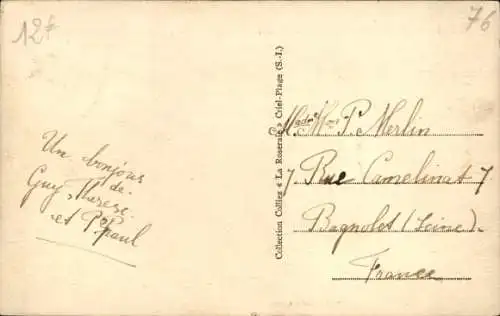 12f
76
Un bonjour
de
Guy, Therese
et P. Paul
Collection Colliez « La Roseraie » Criel-Plage (S.-I.)
P. Merlin
7 Rue Camelinat 7
Bagnolet (Seine).
France